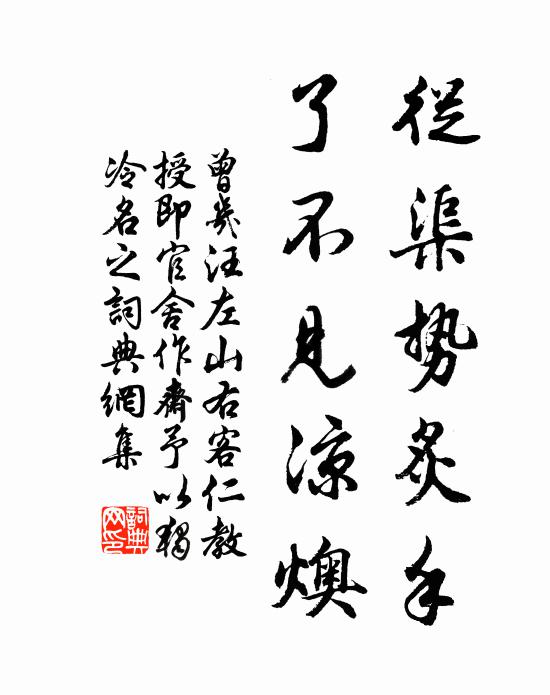 從渠勢炙手
了不見涼燠
曾幾汪左山右客仁教
授即官舍作齋予以獨
冷名之詞典網集
詞典網印